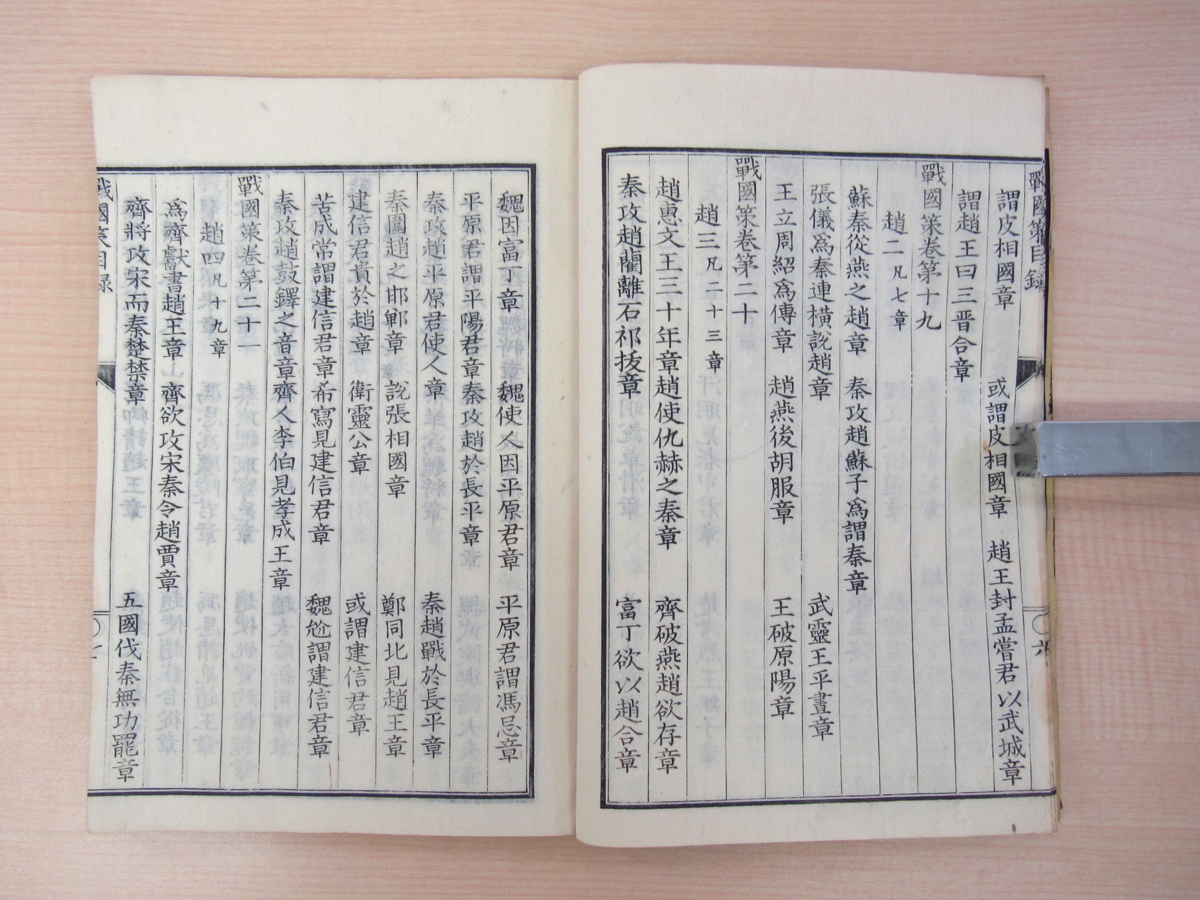 戰國策目録
謂皮相國章 或謂皮相國章 趙王封孟嘗君以武城章
謂趙王曰三晉合章
戰國策卷第十九
趙二 凡七章
蘇秦從燕之趙章 秦攻趙蘇子爲謂秦章
張儀爲秦連橫說趙章 武靈王平晝章
王立周紹爲傅章 趙燕後胡服章 王破原陽章
戰國策卷第二十
趙三 凡二十三章
趙惠文王三十年章 趙使仇赫之秦章 齊破燕趙欲存章
秦攻趙藺離石祁拔章 富丁欲以趙合章
魏因富丁章 魏使人因平原君章 平原君謂馮忌章
平原君謂平陽君章 秦攻趙於長平章
秦攻趙平原君使人章 秦趙戰於長平章
秦圍趙之邯鄲章 說張相國章 鄭同北見趙王章
建信君貴於趙章 衛靈公章 或謂建信君章
苦成常謂建信君章 希寫見建信君章 魏尬謂建信君章
秦攻趙鼓鐸之音章 齊人李伯見孝成王章
戰國策卷第二十一
趙四 凡十九章
爲齊獻書趙王章 齊欲攻宋秦令趙賈章
齊將攻宋而秦楚禁章 五國伐秦無功罷章
戰國策目録